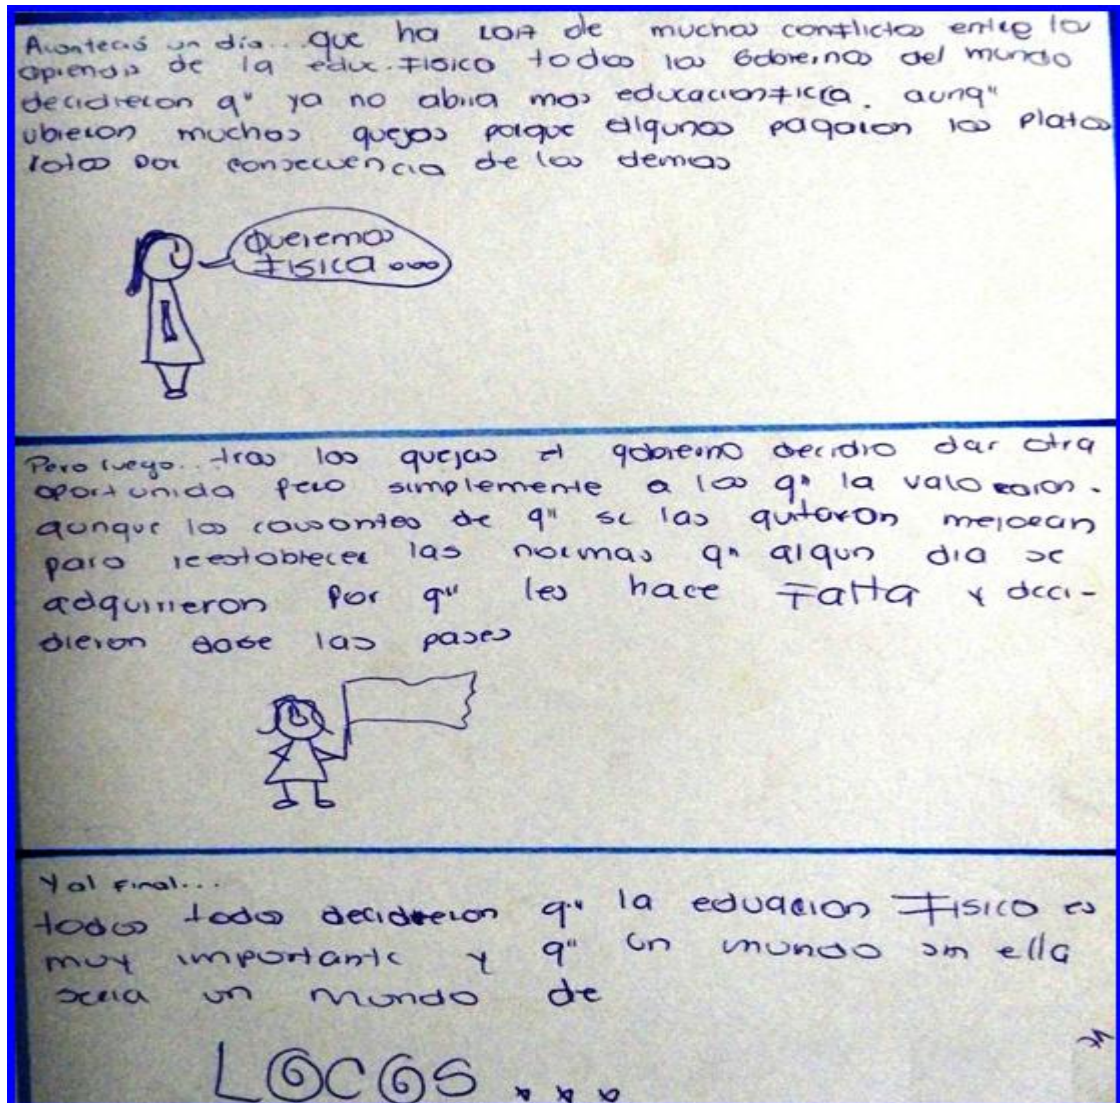 Aconteció un día... que ha raiz de muchos conflictos entre los
aprendis de la educ. Fisica todos los Gobiernos del mundo
decidieron q" ya no abria mas educacion Ficica. aunq"
ubieron muchas quejas porque algunos pagaron los platos
rotos por consecuencia de los demas
Queremos
FISICA ...
Pero luego... tras las quejas el gobierno decidio dar otra
oportunida pero simplemente a los q" la valoraron.
aunque los causantes de q" se las quitaron mejoran
para reestablecer las normas q" algun dia se
adquirieron Por q" les hace Falta y deci-
dieron darse las pases
Y al Final...
todos todos decidieron q" la educacion FISICA es
muy importante y q" un mundo sin ella
seria un mundo de
LOCOS...